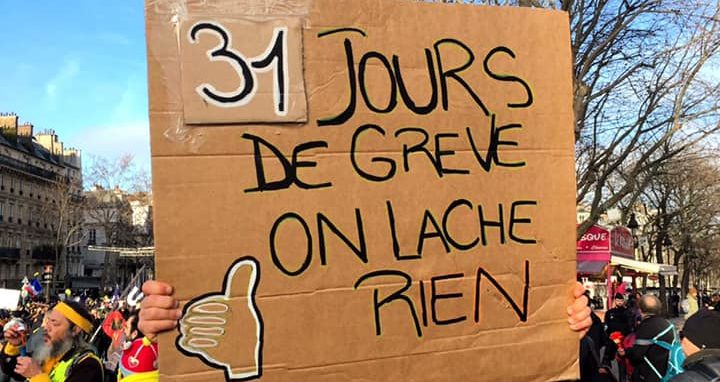 31 JOURS
DE GREVE
ON LACHE
RIEN